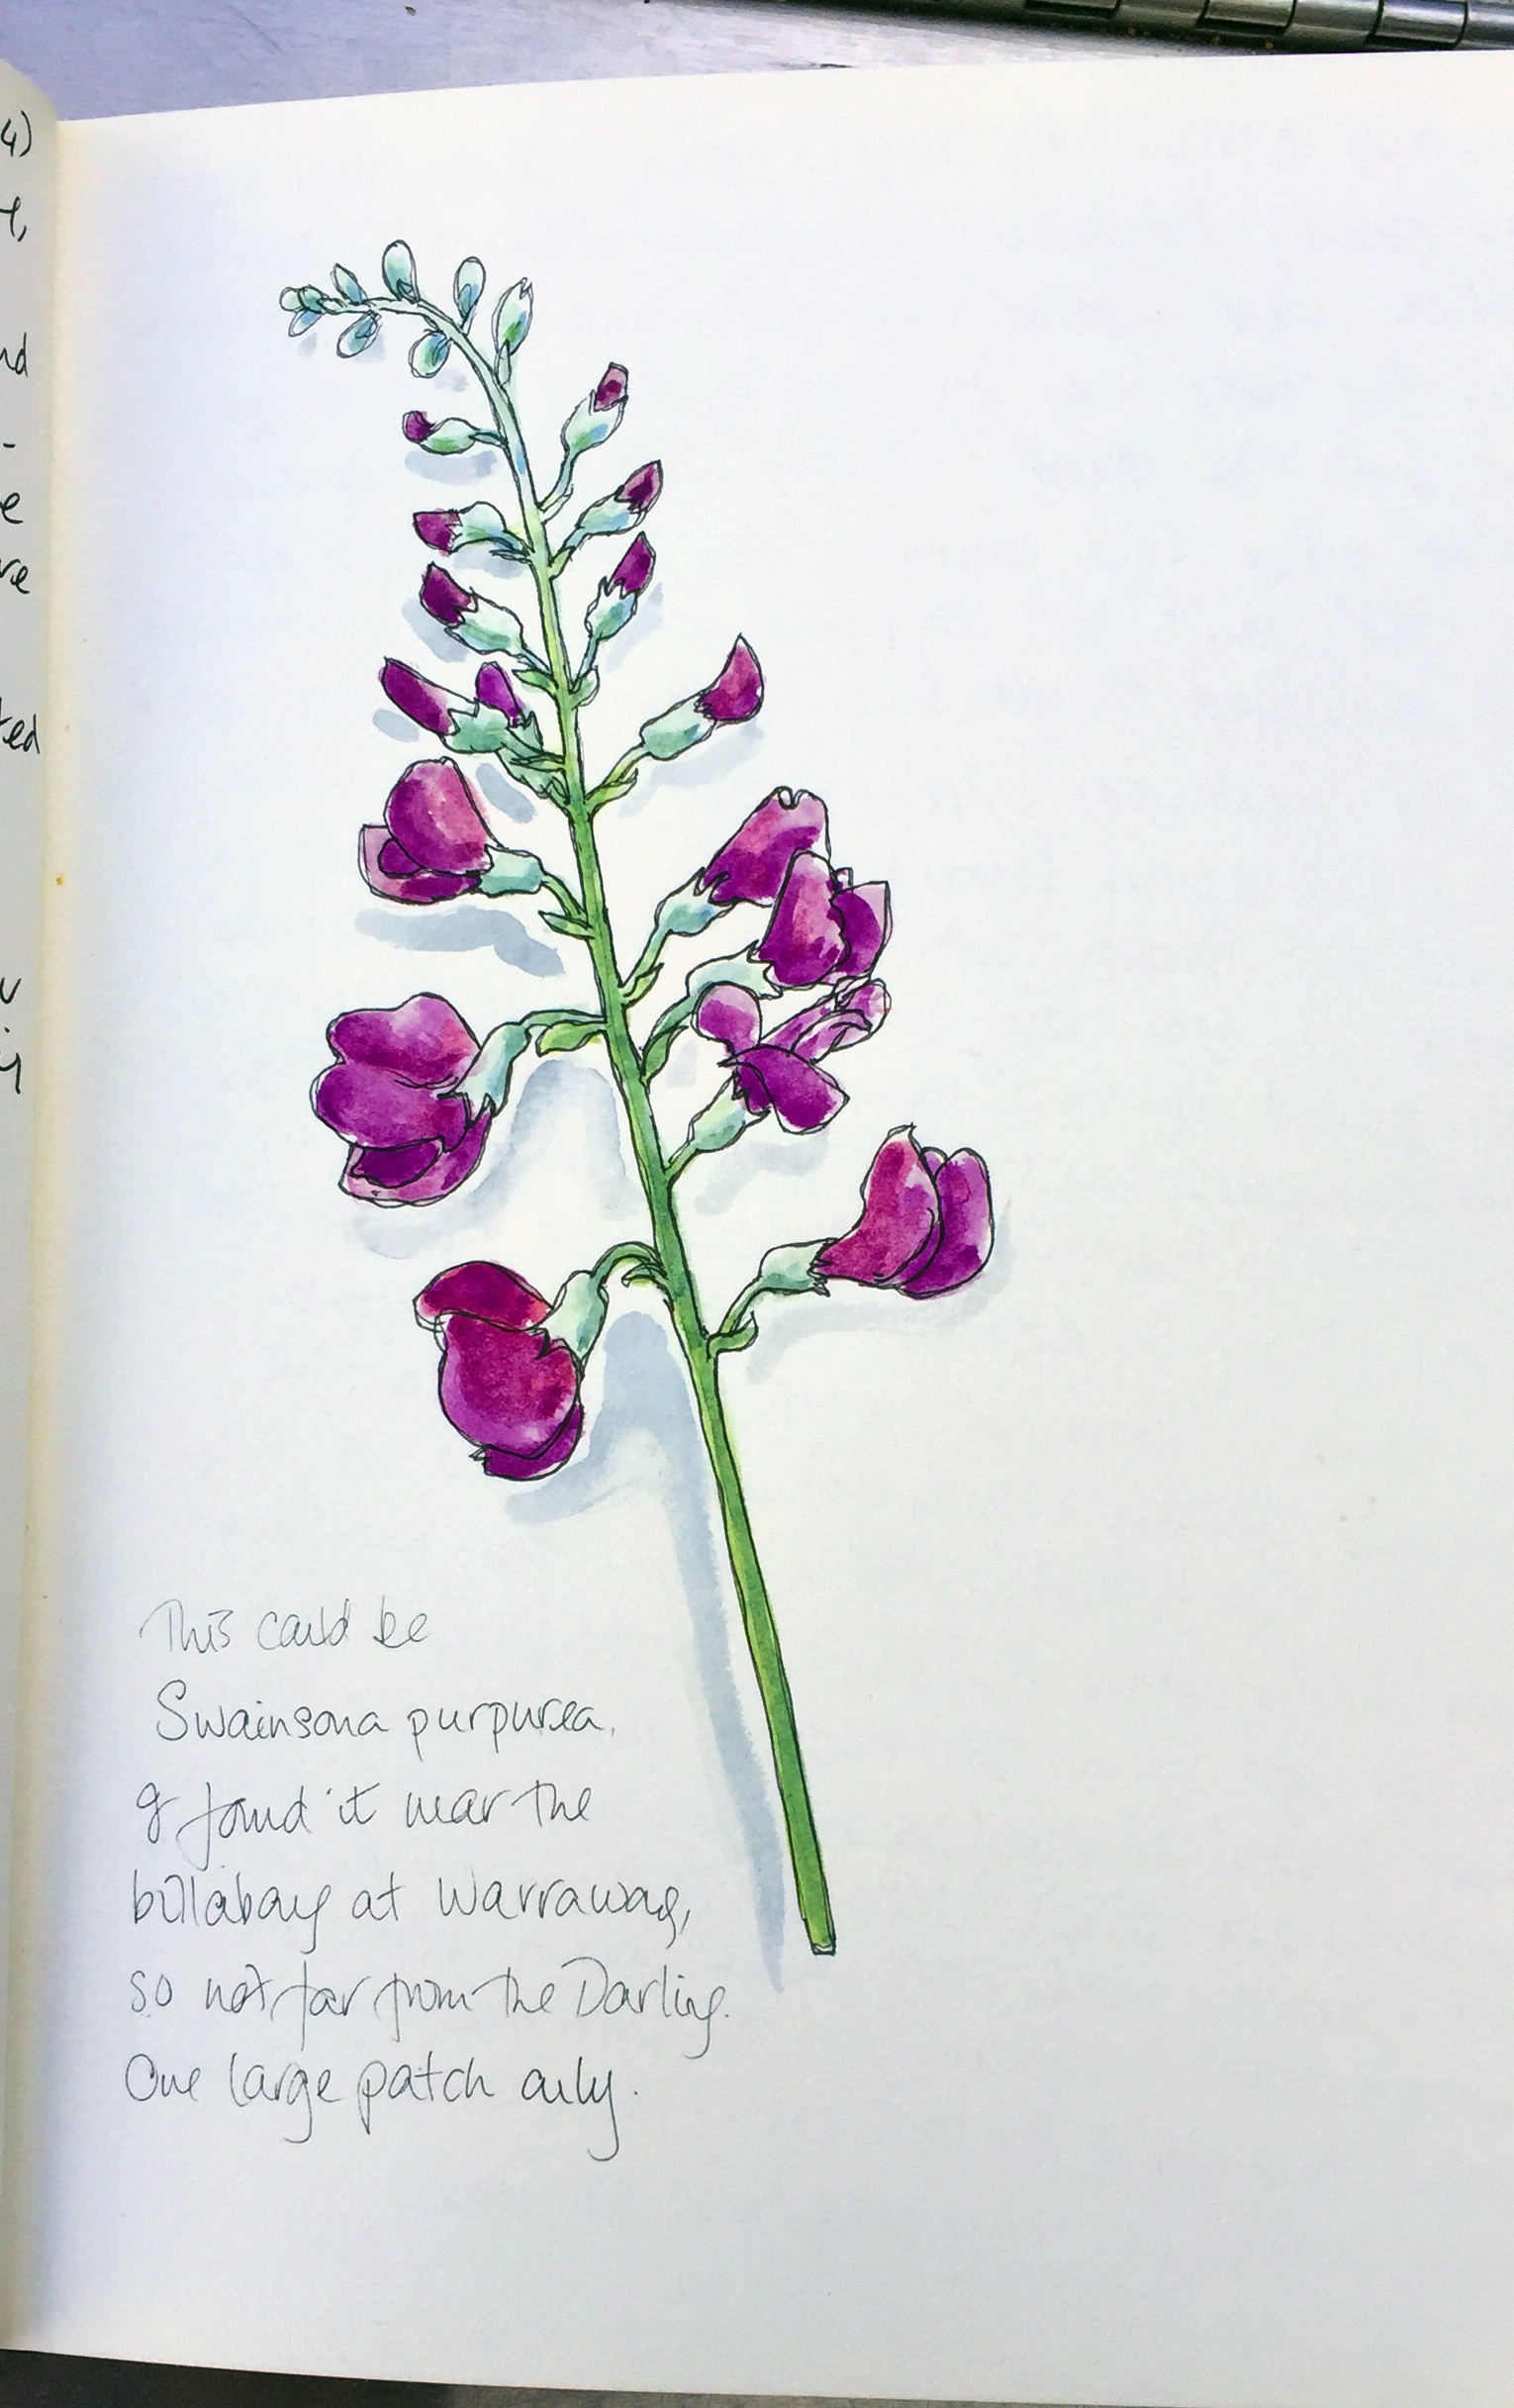 4)
nd
-
e
re
ted
y
This could be
Swainsona purpurea.
I found it near the
billabong at Warrawong,
so not far from the Darling.
One large patch only.